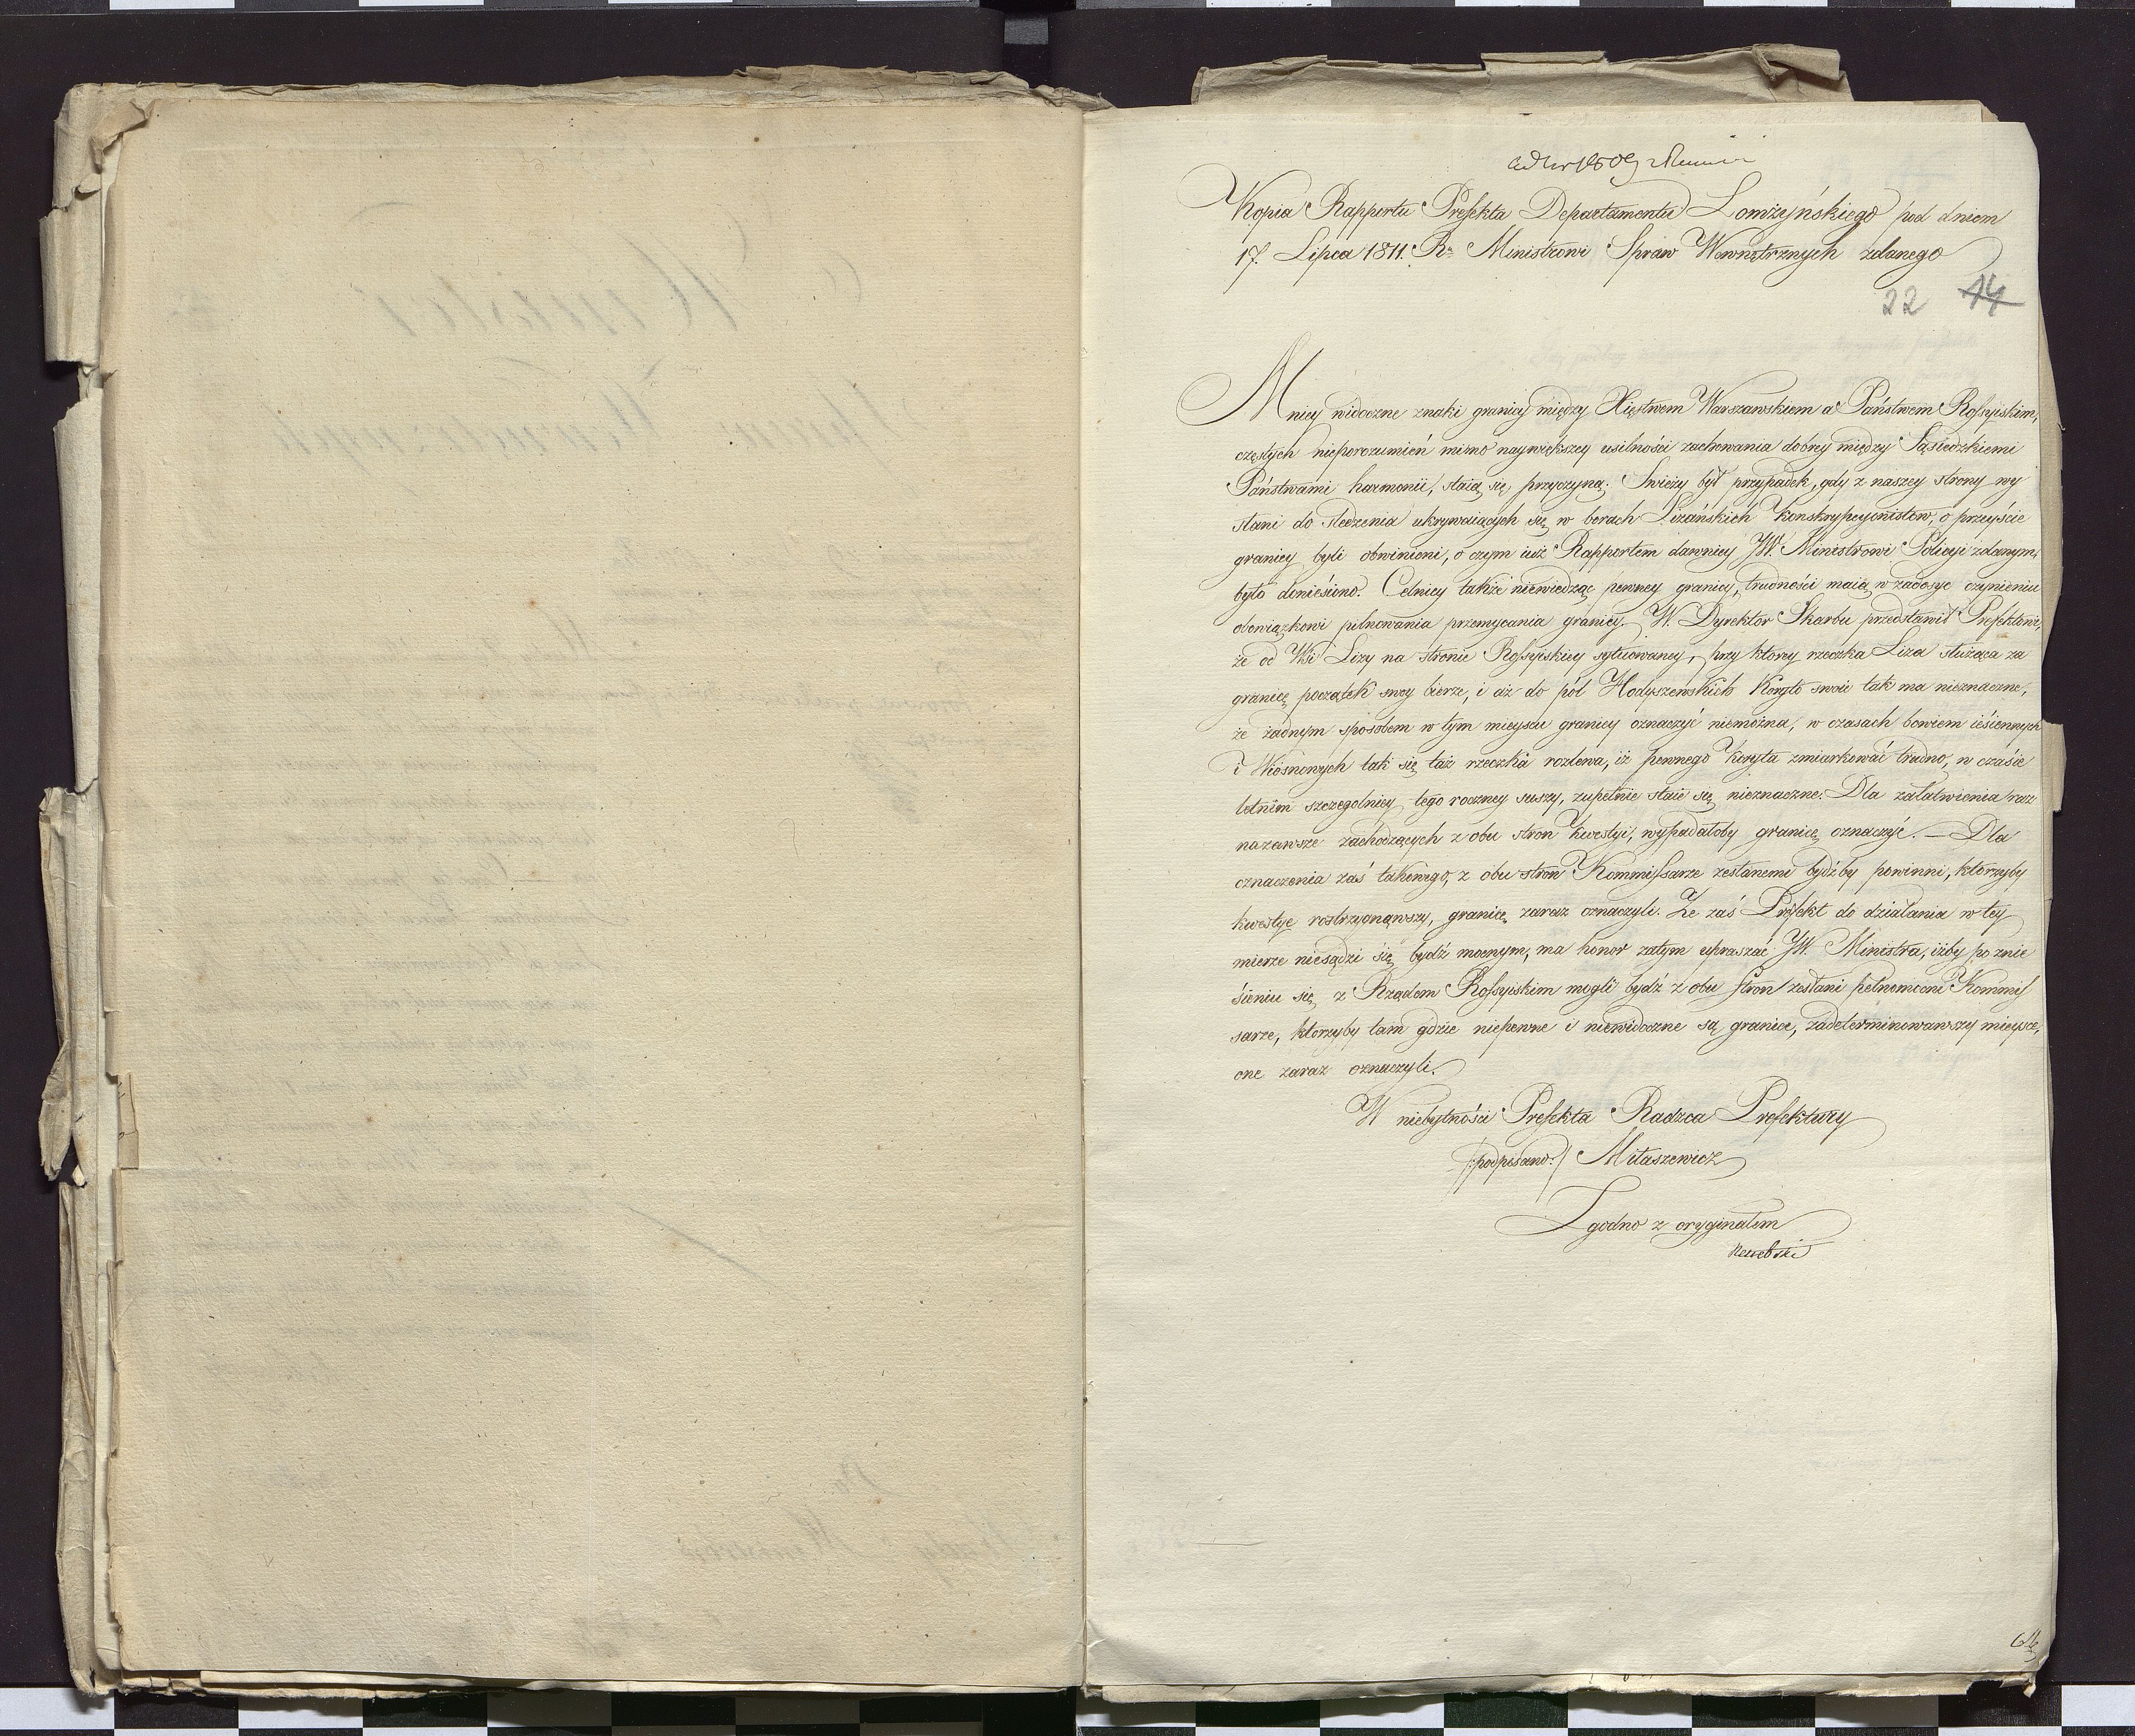 Kopia Rapportu Prefekta Departamentu Łomżyńskiego pod dniem
17. Lipca 1811. Rº Ministrowi Spraw Wewnętrznych zdanego
22 14
Mniey widoczne znaki granicy między Xięstwem Warszawskiem a Państwem Rossyiskim,
częstych nieporozumień mimo naywiększey usilności zachowania dobrey między Sąsiedzkiemi
Państwami harmonii, staią się przyczyną. Swieży był przypadek, gdy z naszey strony wy
słani do sledzenia ukrywaiących się w borach Lizańskich Konskrypcyonistow, o przeyście
granicy byli obwinieni, o czym iuż Rapportem dawniey JW. Ministrowi Policyi zdanym,
było doniesiono. Celnicy także niewiedząc pewney granicy, trudności maią w zadosyc czynieniu
obowiązkowi pilnowania przemycania granicy. W. Dyrektor Skarbu przedstawił Prefektowi,
że od Wsi Lizy na stronie Rossyiskiey sytuowaney, przy ktorey rzeczka Liza służąca za
granicę początek swoy bierze, i aż do pól Hodyszewskich Koryto swoie tak ma nieznaczne,
że żadnym sposobem w tym mieyscu granicy oznaczyć niemożna, w czasach bowiem ieśiennych
i Wiosnowych tak się taż rzeczka rozlewa, iż pewnego Koryta zmiarkować trudno, w czaśie
letnim szczegolniey tego roczney suszy, zupełnie staie się nieznaczne. Dla załatwienia raz
nazawsze zachodzących z obu stron kwestyi, wypadałoby granicę oznaczyć. — Dla
oznaczenia zaś takowego, z obu stron Kommissarze zesłanemi bydźby powinni, ktorzyby
kwestye roztrząsnąwszy, granicę zaraz oznaczyli. Ze zaś Prefekt do działania w tey
mierze niesądzi się bydź mocnym, ma honor zatym upraszać JW. Ministra, iżby po znie
śieniu się z Rządem Rossyiskim mogli bydź z obu stron zesłani pełnomocni Kommis
sarze, ktorzyby tam gdzie niepewne i niewidoczne są granice, zadeterminowawszy mieysce,
one zaraz oznaczyli.
W niebytności Prefekta Radzca Prefektury
/:podpisano:/ Miłaszewicz
Zgodno z oryginałem